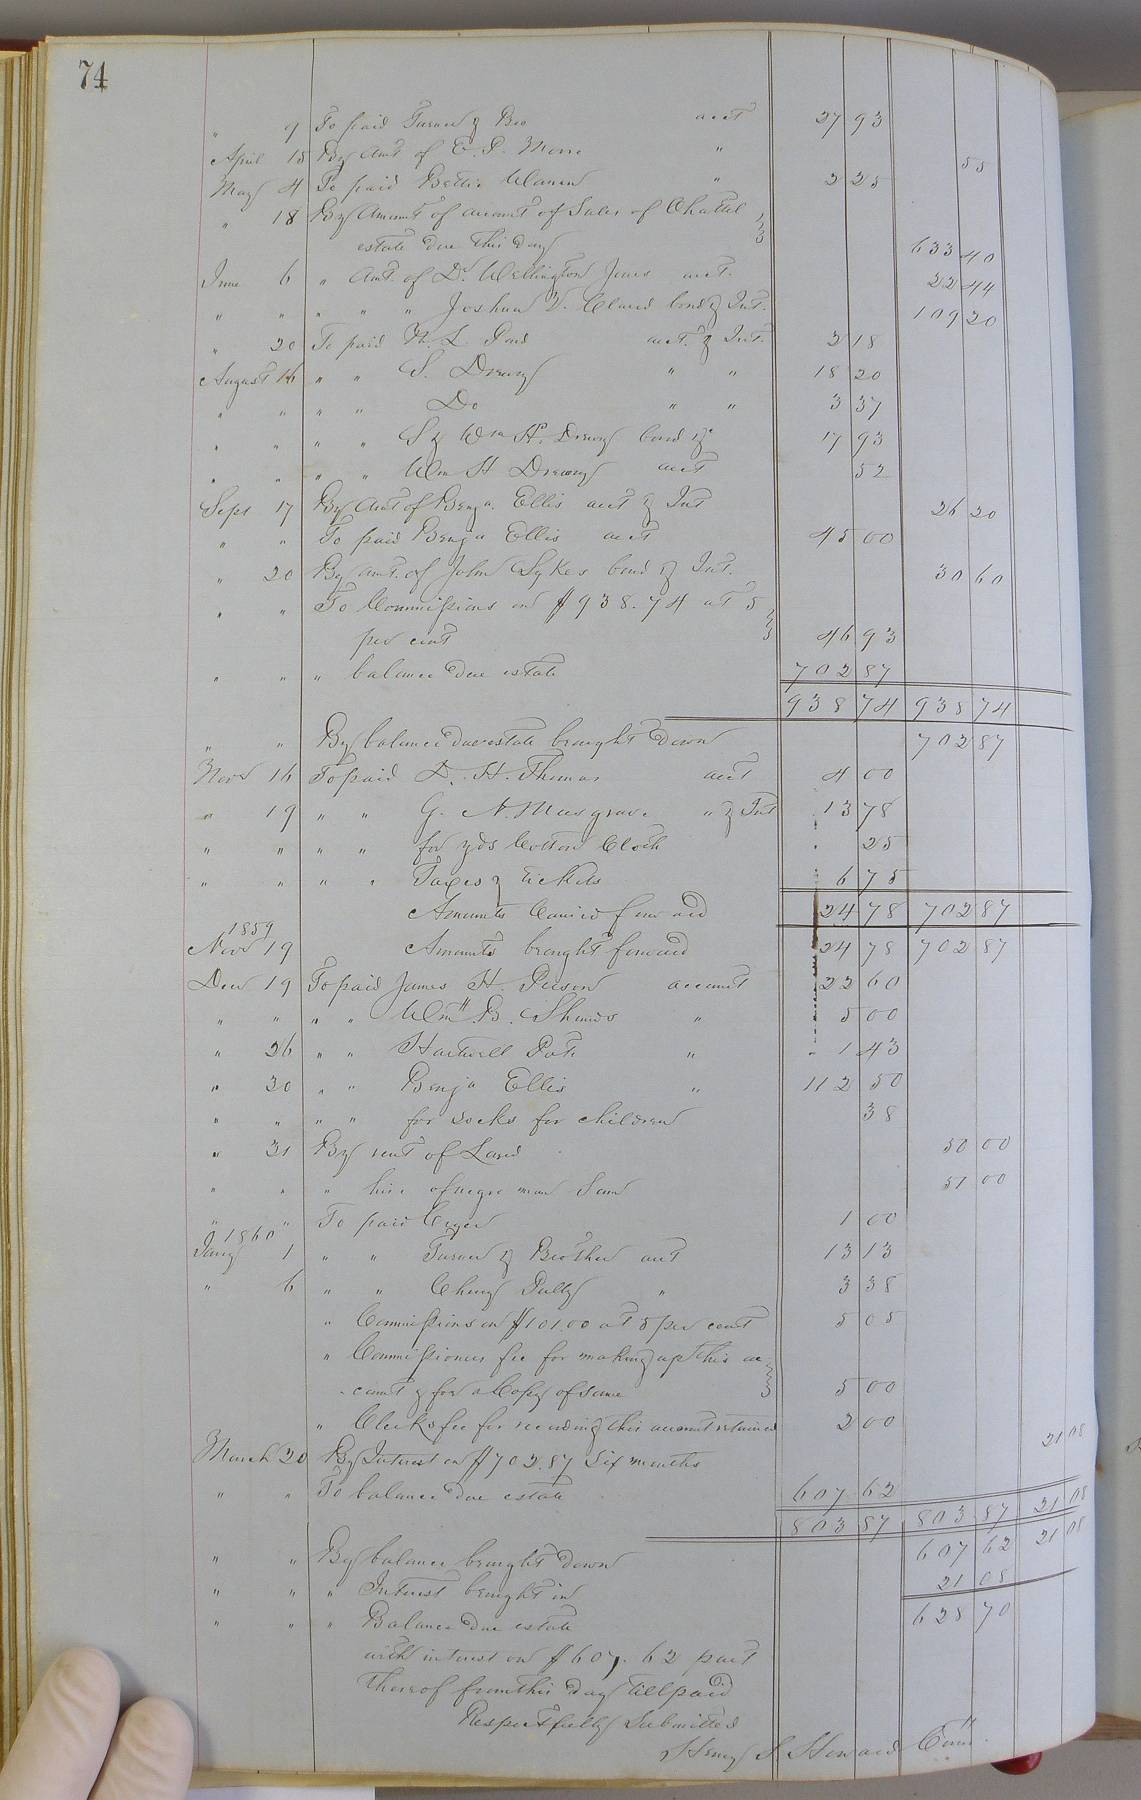 74
" 9 To paid Turner & Bro acct 27 93
April 15 By Amt of E. P. Moore " 55
May 4 To paid Bettie " 2 25
" 18 By Amount of account of Sales of Chattel
estate due this day 633 40
June 6 " Amt. of Dr. Wellington Jones acct. 22 44
" " " " " Joshua bond & Int. 109 20
" 20 To paid acct. & Int. 2 18
August 16 " " S. Drewry " " 18 20
" " " " Do " " 3 37
" " " " S & Wm H. Drewry bond &c 17 93
" " " " Wm H Drewry acct 52
Sept 17 By Amt of Benja. Ellis acct & Int 26 20
" " To paid Benja Ellis acct 45 00
" 20 By amt. of John Sykes bond & Int. 30 60
" " To Commissions on $938.74 at 5
per cent 46 93
" " " balance due estate 702 87
938 74 938 74
" " By balance due estate brought down 702 87
Novr 16 To paid D. H. Thomas acct 4 00
" 19 " " G. N. Musgrave " & Int 13 78
" " " " for yds Cotton Cloth . 25
" " " " Taxes & tickets 6 75
Amounts Carried forward 24 78 702 87
1859
Novr 19 Amounts brought forward 24 78 702 87
Decr 19 To paid James H. account 22 60
" " " " Wm B. Shands " 5 00
" 26 " " Hartwell " 1 43
" 30 " " Benja Ellis " 112 50
" " " " for socks for children 38
" 31 By rent of Land 50 00
" " " hire of negro man Sam 51 00
" " To paid Cryer 1 00
1860
Jany 1 " " Turner & Brother acct 13 13
" 6 " " " 3 38
" Commissions on $101.00 at 5 per cent 5 05
" Commissioners fee for making up this ac
count & for a Copy of same 5 00
" Clerks fee for recording this account returned 2 00
March 20 By Interest on $702.87 Six months 21 08
" " To balance due estate 607 62
803 87 803 87 21 08
" " By balance brought down 607 62 21 08
" " " Interest brought in 21 08
" " " Balance due estate 628 70
with interest on $607.62 part
thereof from this day till paid
Respectfully Submitted
Henry S Howard Comr.